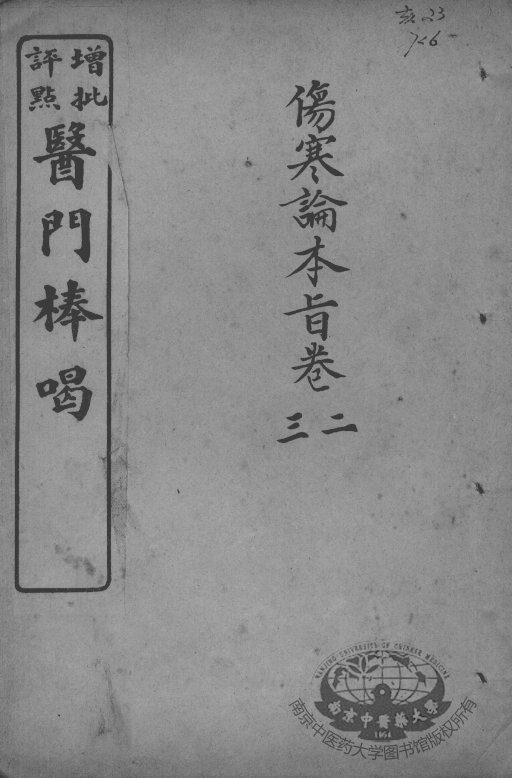 亥23
7~6
傷寒論本旨卷
二
三
增批
評點
醫門棒喝
NANJING UNIVERSITY OF CHINESE MEDICINE
南京中醫藥大學
1954
南京中医药大学图书馆版权所有